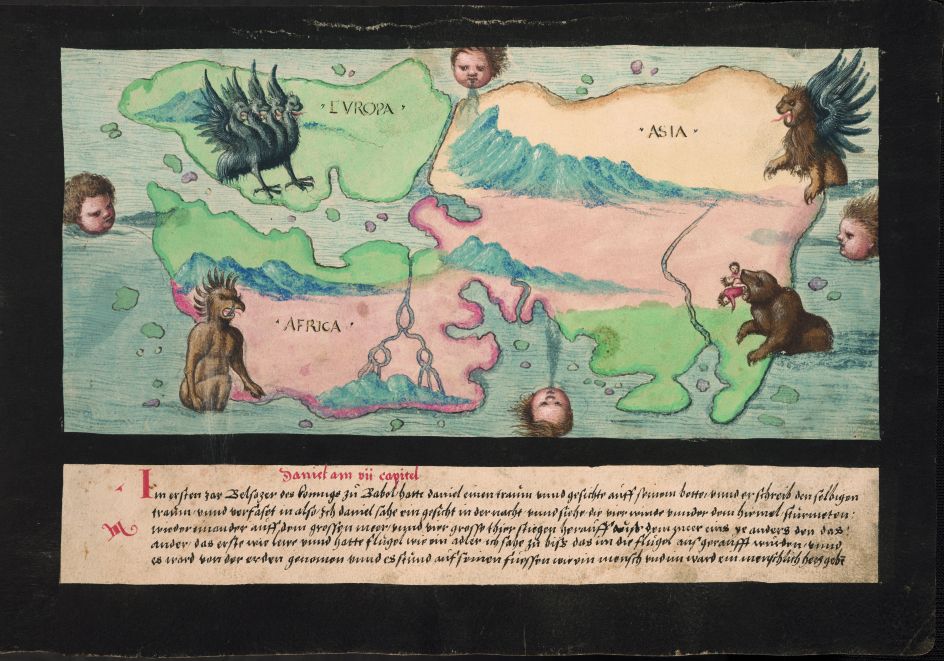 EVROPA
ASIA
AFRICA
Daniel am vii capitel
Im ersten jar Belsazer des konnigs zů Babel hatte daniel einen traum vnnd gesichte auff seinem bette vnnd er schreib den selbigen
traum vnnd verfaset in also Ich daniel sahe ein gesicht in der nacht vnnd siehe die vier winde vnnder dem himel stürmeten
wieder einander auff dem grossen meer vnnd vier grosse thier stiegen herauff auß dem meer eins ye anders den das
ander das erste wie lewe vnnd hatte flügel wie ein adler ich sahe zů biß das im die flügel auß gerauft wurden vnnd
es ward von der erden genomen vnnd es stůnd auf seinen fuessen wie ein mensch vnd im ward ein menschlich hertz gebē